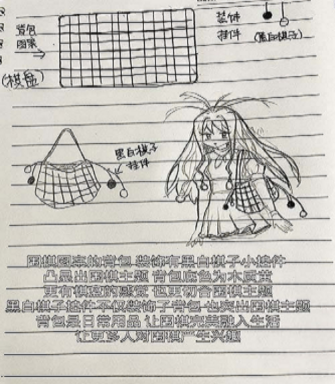 背包
图案
(棋盘)
装饰
挂件
(黑白棋子)
黑白棋子
挂件
围棋图案的背包 装饰有黑白棋子小挂件
凸显出围棋主题 背包底色为木质黄
更有棋盘的感觉 也更切合围棋主题
黑白棋子挂件不仅装饰了背包 也突出围棋主题
背包是日常用品 让围棋完美融入生活
让更多人对围棋产生兴趣